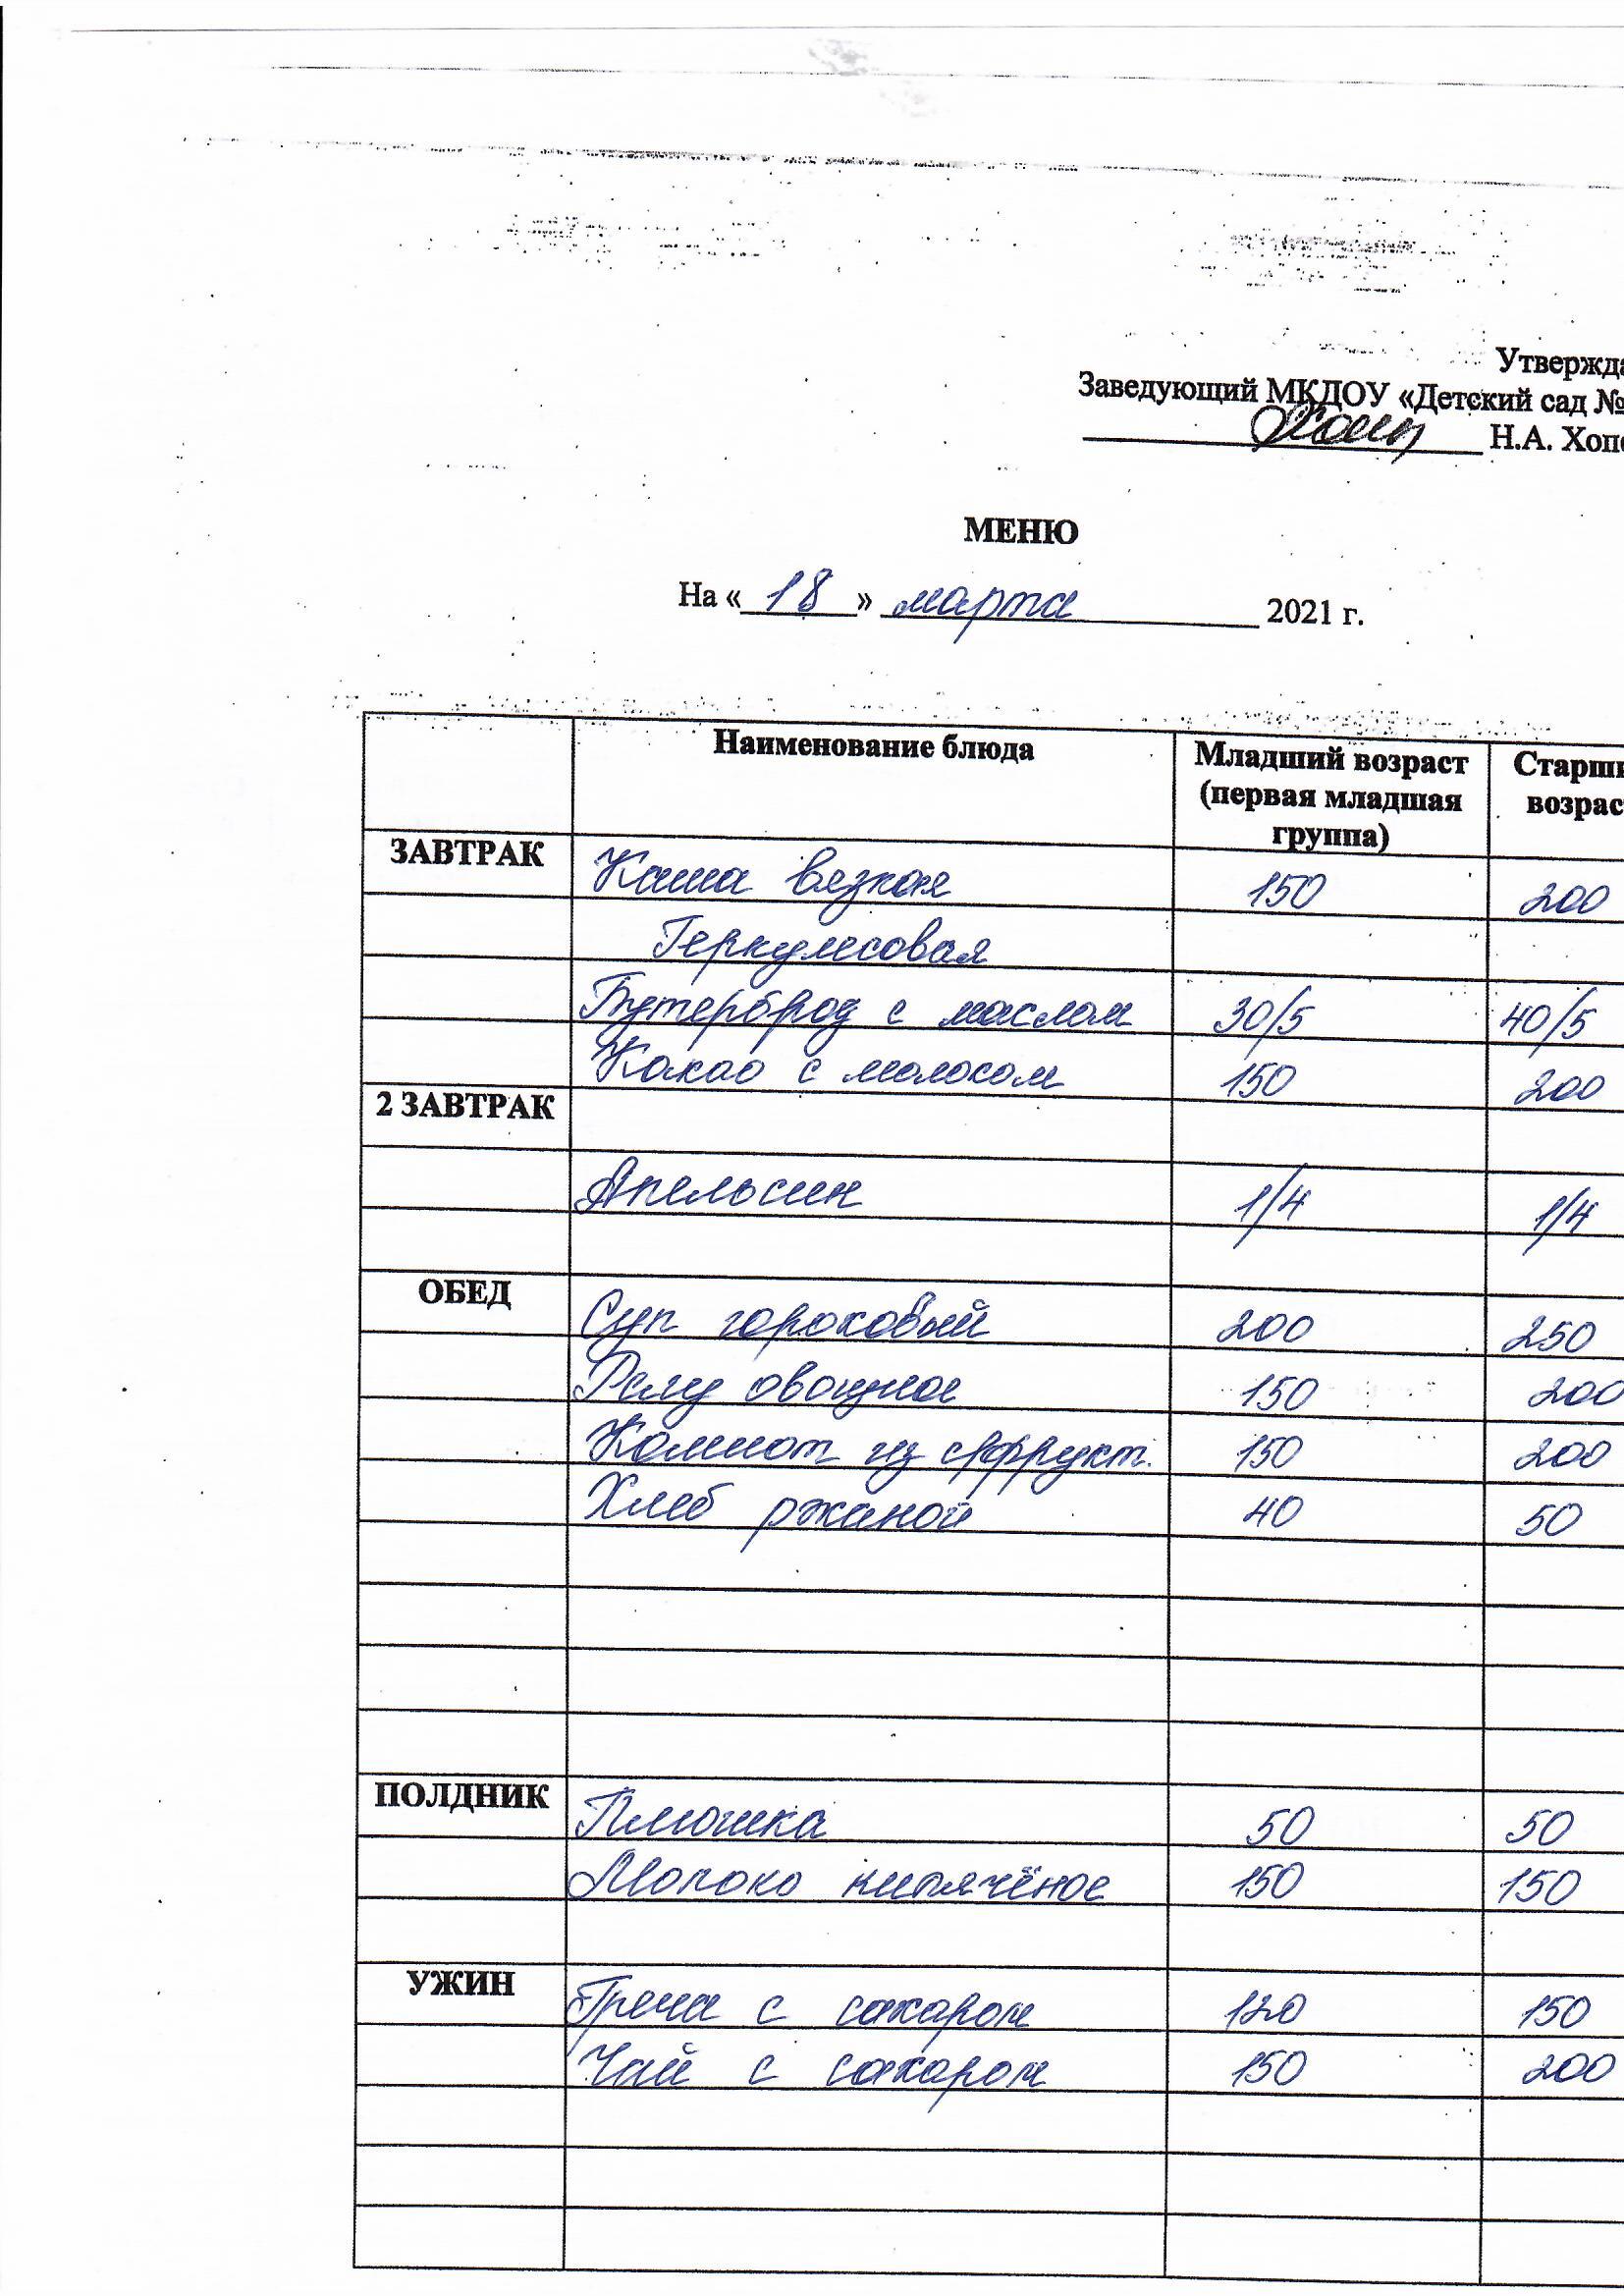 Утвержда
Заведующий МКДОУ «Детский сад №
Н.А. Хопе
МЕНЮ
На « 18 » марта 2021 г.
Наименование блюда Младший возраст (первая младшая группа) Старши возрас
ЗАВТРАК Каша вязкая 150 200
Геркулесовая
Бутерброд с маслом 30/5 40/5
Какао с молоком 150 200
2 ЗАВТРАК
Апельсин 1/4 1/4
ОБЕД Суп гороховый 200 250
Рагу овощное 150 200
Компот из с/фрукт. 150 200
Хлеб ржаной 40 50
ПОЛДНИК Плюшка 50 50
Молоко кипячёное 150 150
УЖИН Греча с сахаром 120 150
Чай с сахаром 150 200